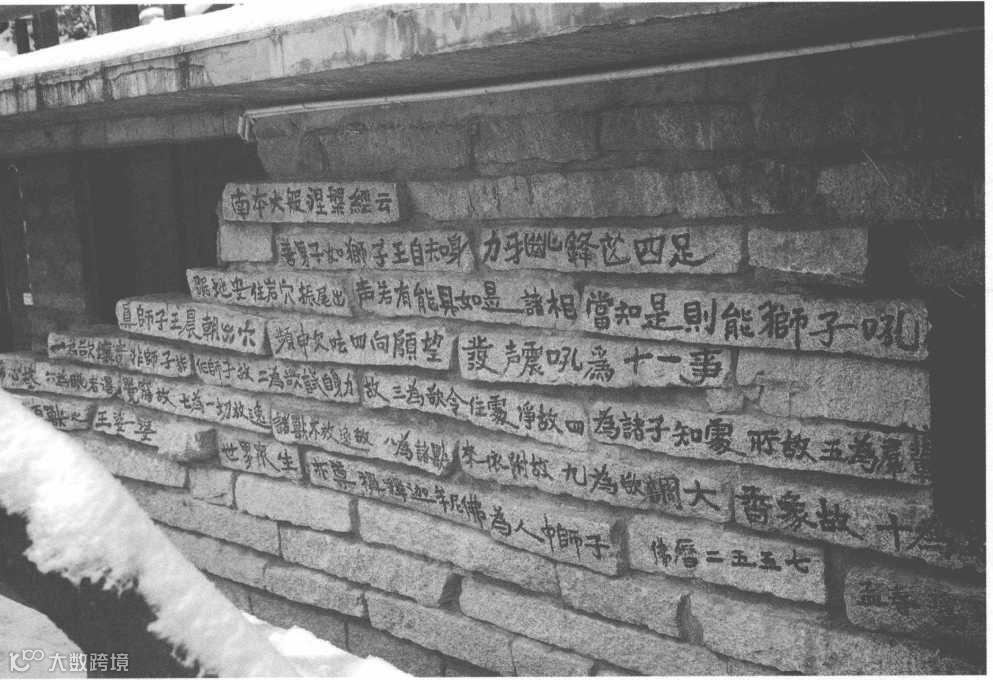 南本大般涅槃經云
善男子如獅子王自知身力牙齒鋒芒四足
踞地安住岩穴振尾出声若有能具如是諸相當知是則能獅子吼
真師子王晨朝出穴頻申欠呿四向顧望發声震吼為十一事
一為欲壞岩非師子詐作師子故二為欲試自身力故三為欲令住處淨故四為諸子知處所故五為羣輩
心故六為眠者還覺寤故七為一切放逸諸獸不放逸故八為諸獸來依附故九為欲調大香象故十
獸之王
世界眾生所尊稱釋迦牟尼佛為人中師子佛曆二五五七
大数跨境